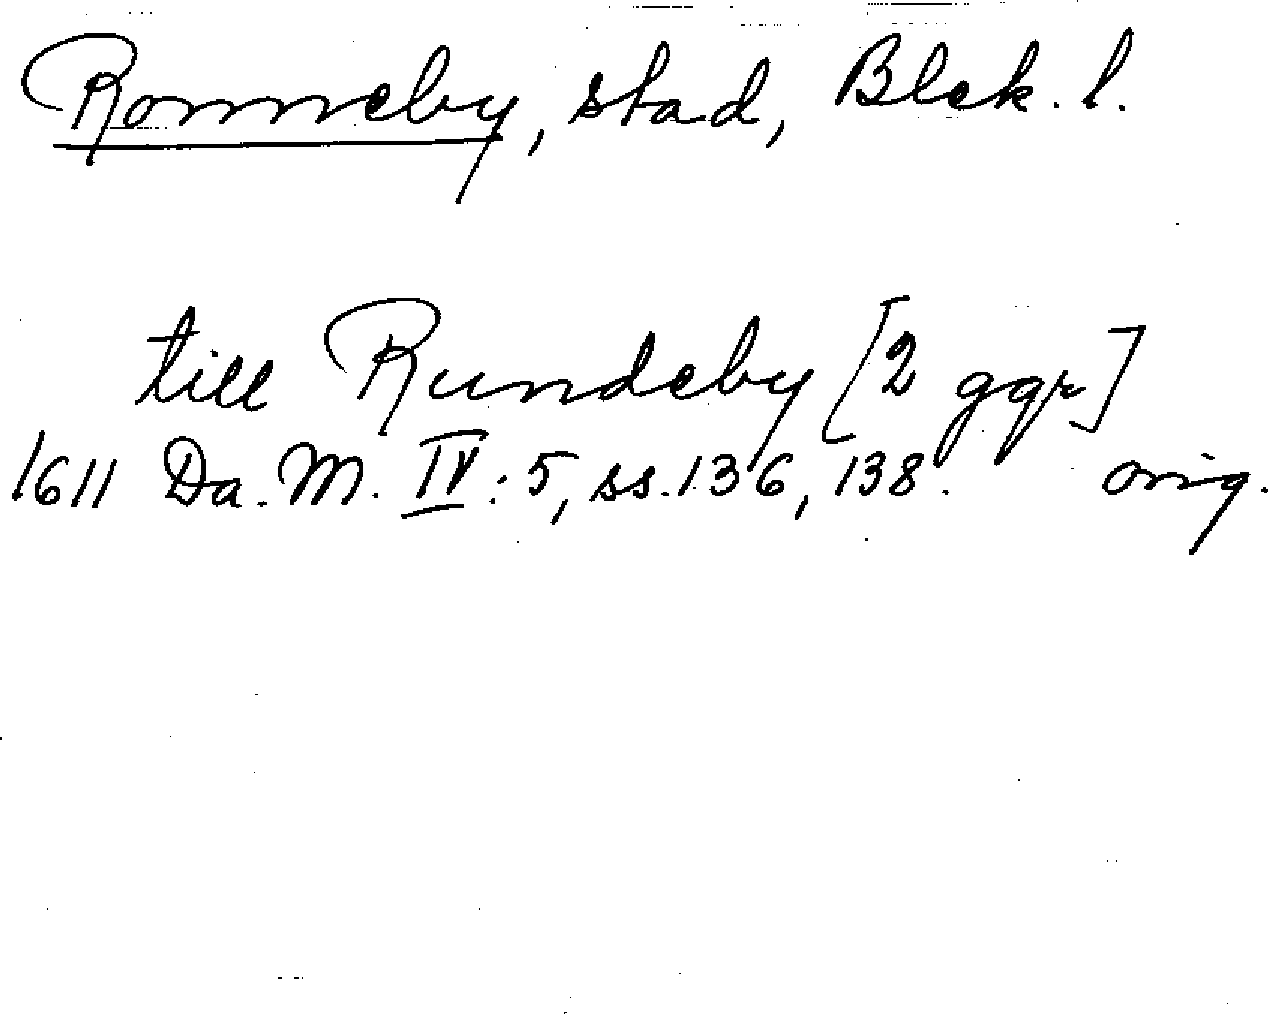 Ronneby, stad, Blek. l.
till Rundeby [2 ggr]
1611 Da. M. IV: 5, ss. 136, 138. orig.